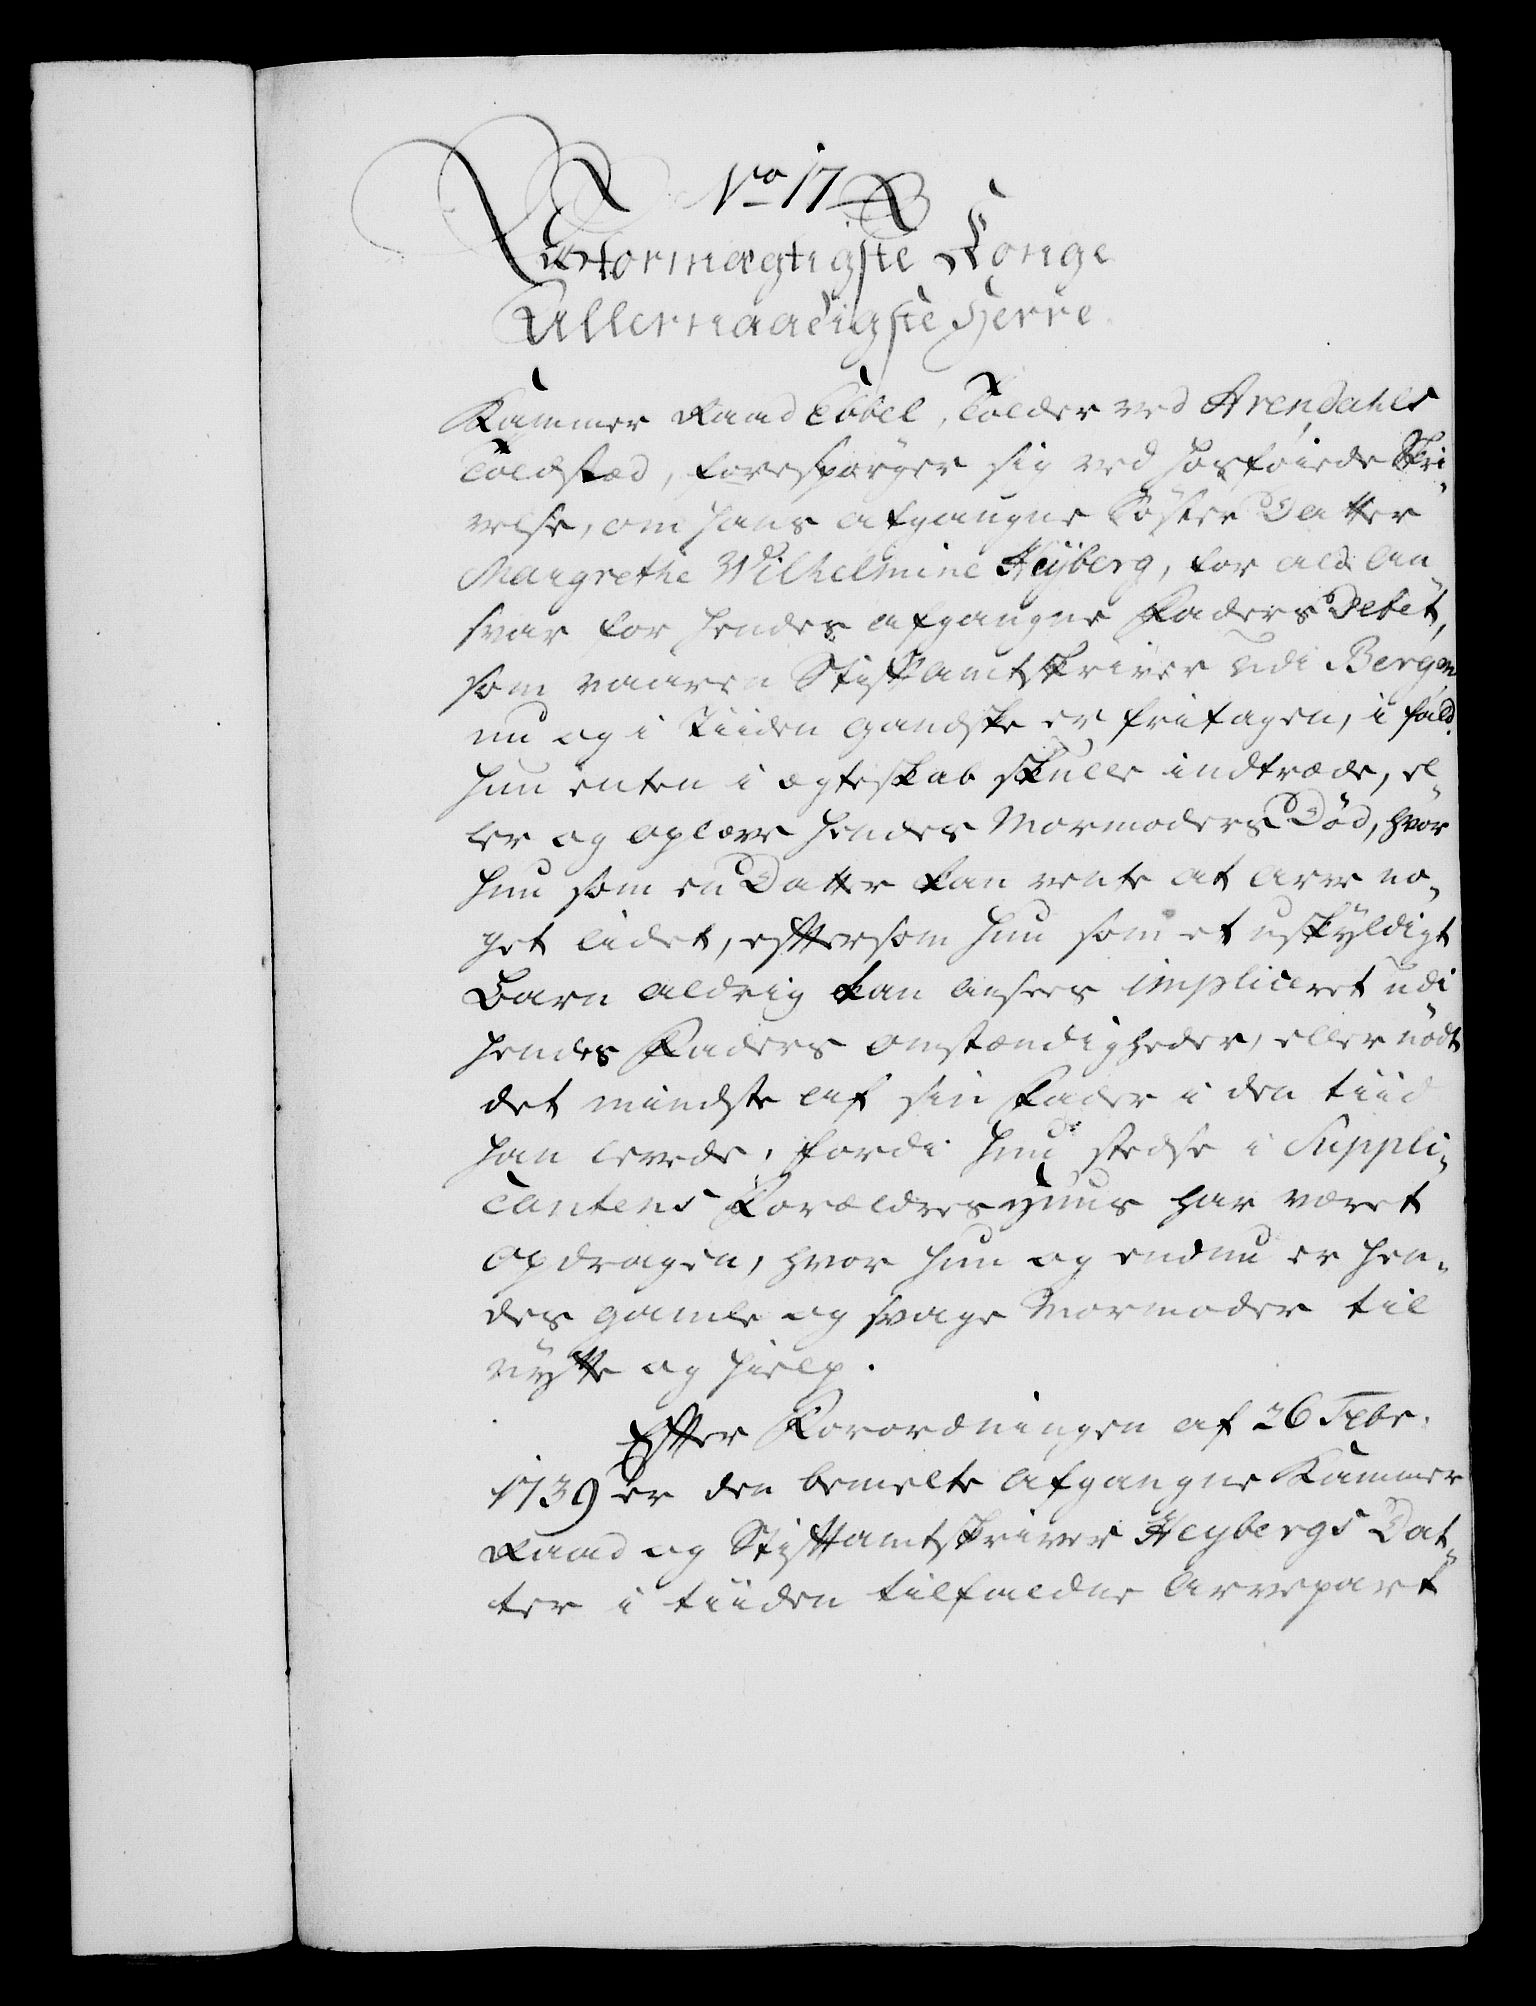 No 17
Stormægtigste Konge
Allernaadigste Herre
Kammer Raad Cobel, Tolder ved Arendahls
Toldsted, forespørger sig ved hosføiede Skri-
velse, om hans afgangne Søster Datter
Margrethe Wilhelmine Heyberg, for ald An-
svar for hendes afgangne Faders Debet,
som vaaren Stiftamtskriver udi Bergen
nu og i Tiiden gandske er fritagen, i fald
hun enten i ægteskab skulle indtræde, el-
ler og opleve hendes Mormoders Død, hvor
hun som en Datter kan vente at arve no-
get lidet, eftersom hun som et uskyldigt
Barn aldrig kan ansees impliceret udi
hendes Faders omstændigheder, eller nødt
det mindste af sin Fader i den tiid
han levede, fordi hun stedse i Suppli-
cantens Forældres Huus har været
opdragen, hvor hun og endnu er hen-
des gamle og svage Mormoder til
nytte og hielp.
Efter Forordningen af 26
1739 er den bemelte afgangne Kammer
Raad og Stiftamtskriver Heybergs Dat-
ter i tiiden tilfaldne Arvepart